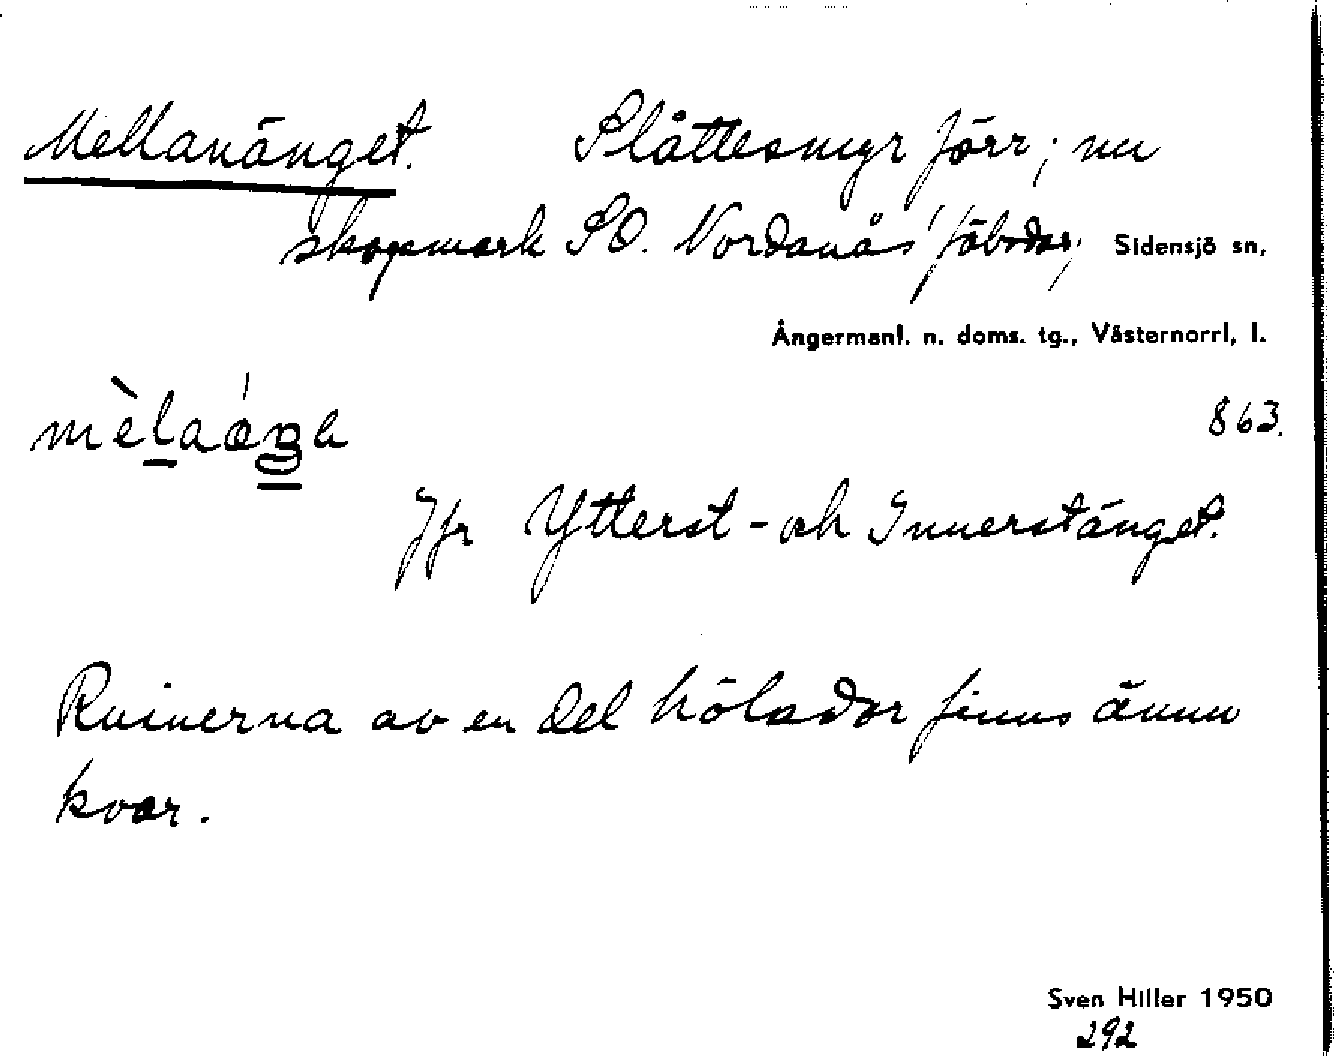 Mellanänget. Slåttesmyr förr; nu
skogsmark SO. Nordanås' fäbodar; Sidensjö sn,
Ångermanl. n. doms. tg., Västernorrl, l.
863.
Jfr Ytterst- och Innerstänget.
Ruinerna av en del hölador finns ännu
kvar.
Sven Hiller 1950
292